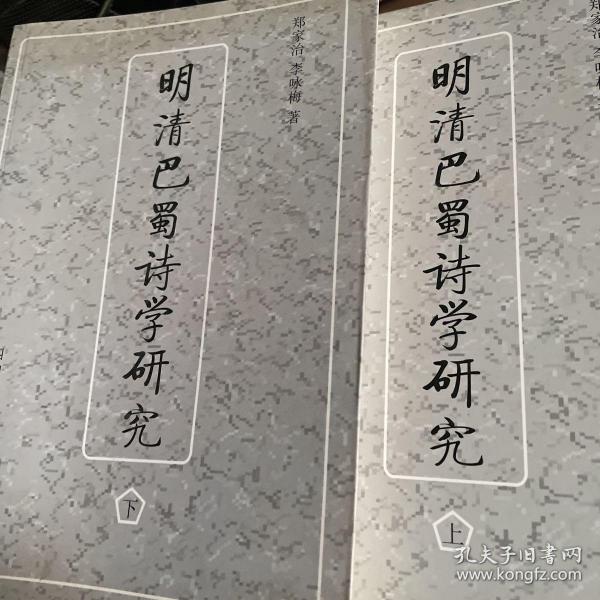 郑家治 李咏梅 著
明清巴蜀诗学研究
下
郑家治 李咏梅
明清巴蜀诗学研究
上
孔夫子旧书网
www.kongfz.com